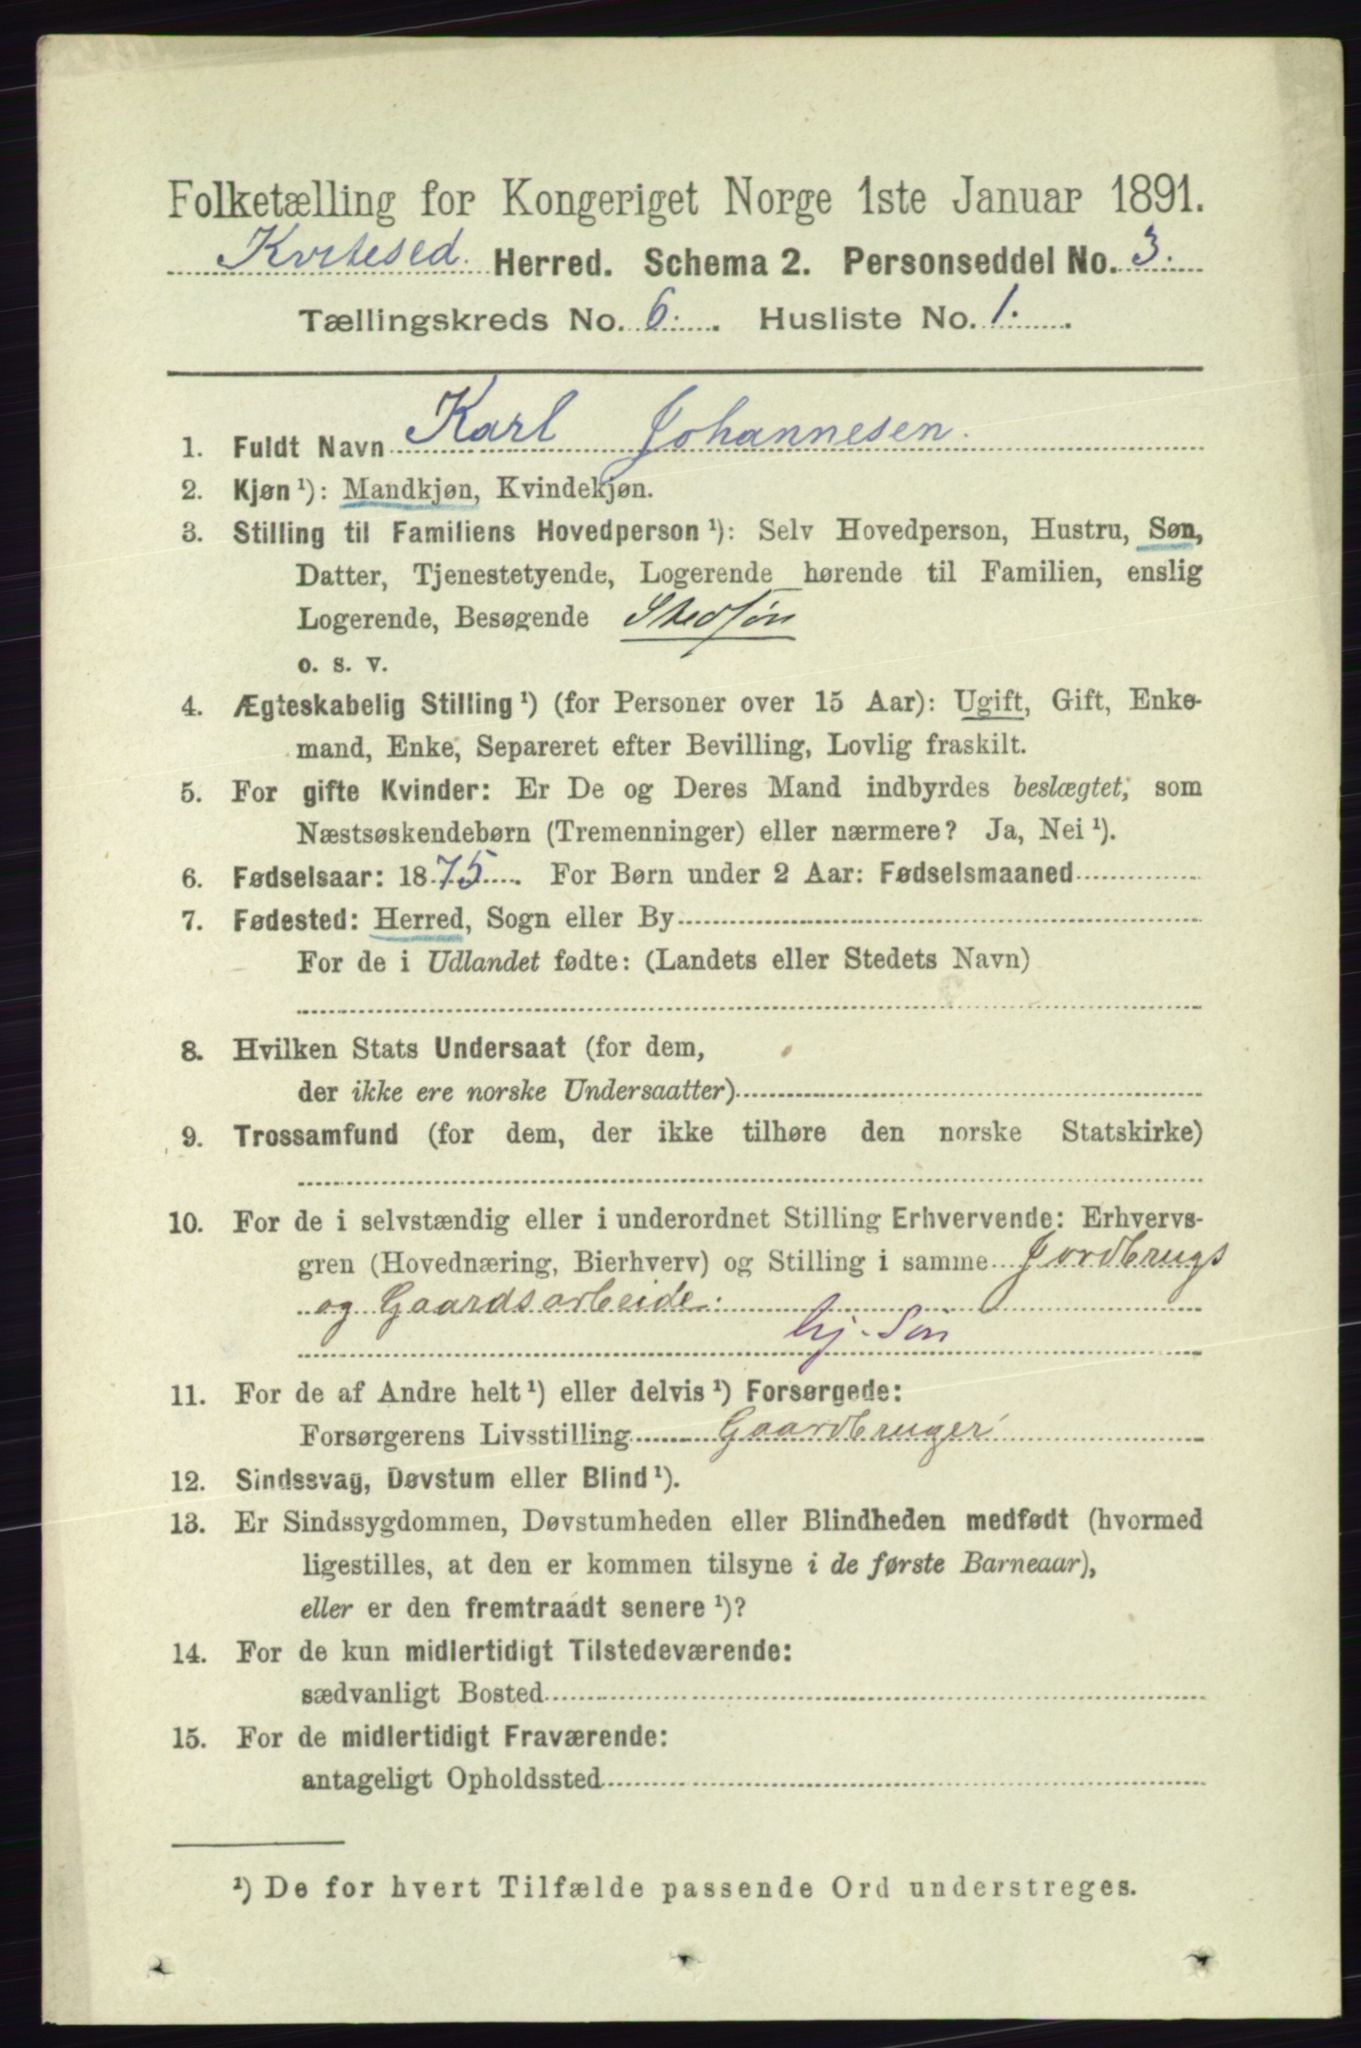 Folketælling for Kongeriget Norge 1ste Januar 1891.
Kvitesed. Herred. Schema 2. Personseddel No. 3.
Tællingskreds No. 6. Husliste No. 1.
1. Fuldt Navn Karl Johannesen.
2. Kjøn ¹): Mandkjøn, Kvindekjøn.
3. Stilling til Familiens Hovedperson ¹): Selv Hovedperson, Hustru, Søn,
Datter, Tjenestetyende, Logerende hørende til Familien, enslig
Logerende, Besøgende Stedsøn
o. s. v.
4. Ægteskabelig Stilling ¹) (for Personer over 15 Aar): Ugift, Gift, Enke-
mand, Enke, Separeret efter Bevilling, Lovlig fraskilt.
5. For gifte Kvinder: Er De og Deres Mand indbyrdes beslægtet, som
Næstsøskendebørn (Tremenninger) eller nærmere? Ja, Nei ¹).
6. Fødselsaar: 1875. For Børn under 2 Aar: Fødselsmaaned
7. Fødested: Herred, Sogn eller By
For de i Udlandet fødte: (Landets eller Stedets Navn)
8. Hvilken Stats Undersaat (for dem,
der ikke ere norske Undersaatter)
9. Trossamfund (for dem, der ikke tilhøre den norske Statskirke)
10. For de i selvstændig eller i underordnet Stilling Erhvervende: Erhvervs-
gren (Hovednæring, Bierhverv) og Stilling i samme Jordbrugs
og Gaardsarbeide.
hj. Søn
11. For de af Andre helt ¹) eller delvis ¹) Forsørgede:
Forsørgerens Livsstilling Gaardbruger
12. Sindssvag, Døvstum eller Blind ¹).
13. Er Sindssygdommen, Døvstumheden eller Blindheden medfødt (hvormed
ligestilles, at den er kommen tilsyne i de første Barneaar),
eller er den fremtraadt senere ¹)?
14. For de kun midlertidigt Tilstedeværende:
sædvanligt Bosted
15. For de midlertidigt Fraværende:
antageligt Opholdssted
¹) De for hvert Tilfælde passende Ord understreges.